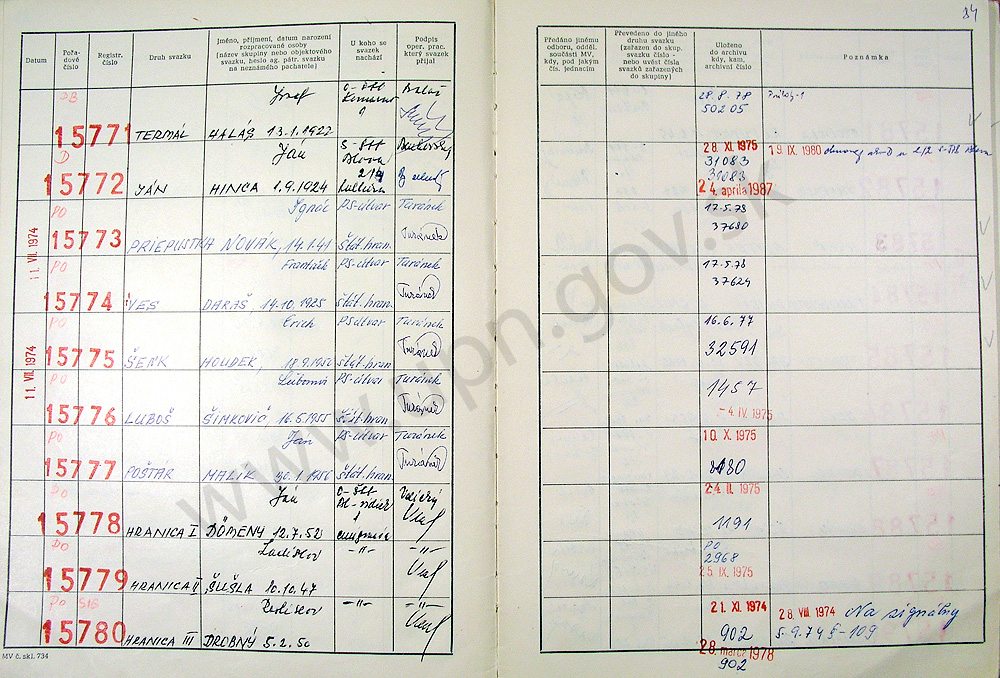 84
Datum
Pořadové číslo
Registr. číslo
Druh svazku
Jméno, příjmení, datum narození rozpracované osoby (název skupiny nebo objektového svazku, heslo ag. pátr. svazku na neznámého pachatele)
U koho se svazek nachází
Podpis oper. prac. který svazek přijal
Předáno jinému odboru, odděl. součásti MV kdy, pod jakým čís. jednacím
Převedeno do jiného druhu svazku (zařazen do skup. svazku číslo - nebo uvést čísla svazků zařazených do skupiny)
Uloženo do archivu kdy, kam, archivní číslo
Poznámka
Jozef
15771 TERMÁL HALÁS 13.1.1922
28.8.78
50205
D Ján
15772 JÁN HINCA 1.9.1924
28 XI 1975 19. IX. 1980
31083
31083
24. apríla 1987
PO Ignác PS-útvar Turánek
15773 PRIEPUSTKA NOVÁK, 14.1.41 štát. hran. Turánek
11. VII. 1974
17.5.78
37680
PO František PS-útvar Turánek
15774 VES DARAŠ, 14.10.1925 štát. hran. Turánek
17.5.78
37624
PO Erich PS útvar Turánek
15775 ŠENK HOUDEK, štát. hran. Turánek
11. VII. 1974
16.6.77
32591
PO Ľubomír PS-útvar Turánek
15776 LUBOŠ ŠIMKOVIČ, 16.5.1955 štát. hran. Turánek
1457
- 4. IV. 1975
PO Ján PS-útvar Turánek
15777 POŠTÁR MALÍK štát. hran. Turánek
10. X. 1975
PO Ján
15778 HRANICA I DÖMENY 12.7.52 emigrácia
24. II. 1975
1191
PO Ladislav -"- -"-
15779 HRANICA II ŠUŠLA 10.10.47
PO
2968
25. IX. 1975
PO -"- -"-
15780 HRANICA III DROBNÝ 5.2.50
21. XI. 1974 28. VIII. 1974 Na signálny
902
28. marca 1978
902
MV č. skl. 734
www.upn.gov.sk